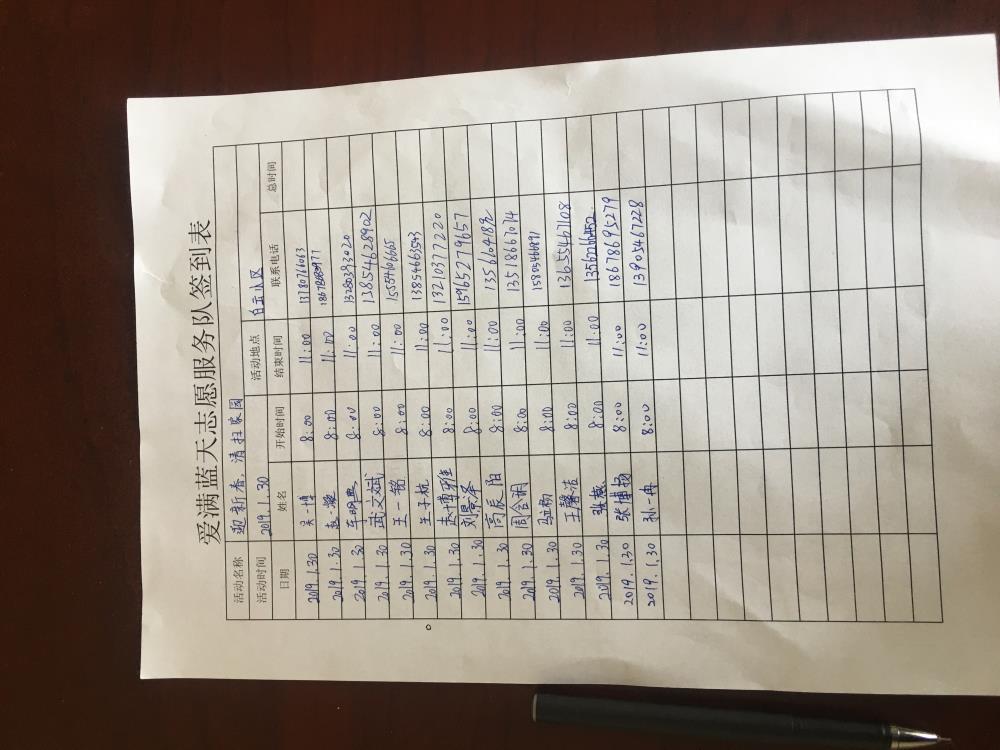 爱满蓝天志愿服务队签到表
活动名称 迎新春,清扫家园
活动时间 2019.1.30 活动地点 白云小区
日期 姓名 开始时间 结束时间 联系电话 总时间
2019.1.30 吴一博 8:00 11:00 13780766063
2019.1.30 赵凝 8:00 11:00
2019.1.30 车明典 8:00 11:00 13280393020
2019.1.30 武文斌 8:00 11:00 13854628902
2019.1.30 王一铭 8:00 11:00 15554606665
2019.1.30 王子杭 8:00 11:00 13854663543
2019.1.30 赵博雅 8:00 11:00 13210377220
2019.1.30 刘景泽 8:00 11:00 15965279657
2019.1.30 高辰阳 8:00 11:00
2019.1.30 周含玥 8:00 11:00 13518667074
2019.1.30 马杨 8:00 11:00 15805466891
2019.1.30 王馨洁 8:00 11:00 13655467108
2019.1.30 张燕 8:00 11:00
2019.1.30 张博扬 8:00 11:00 18678695279
2019.1.30 孙一冉 8:00 11:00 13905467228